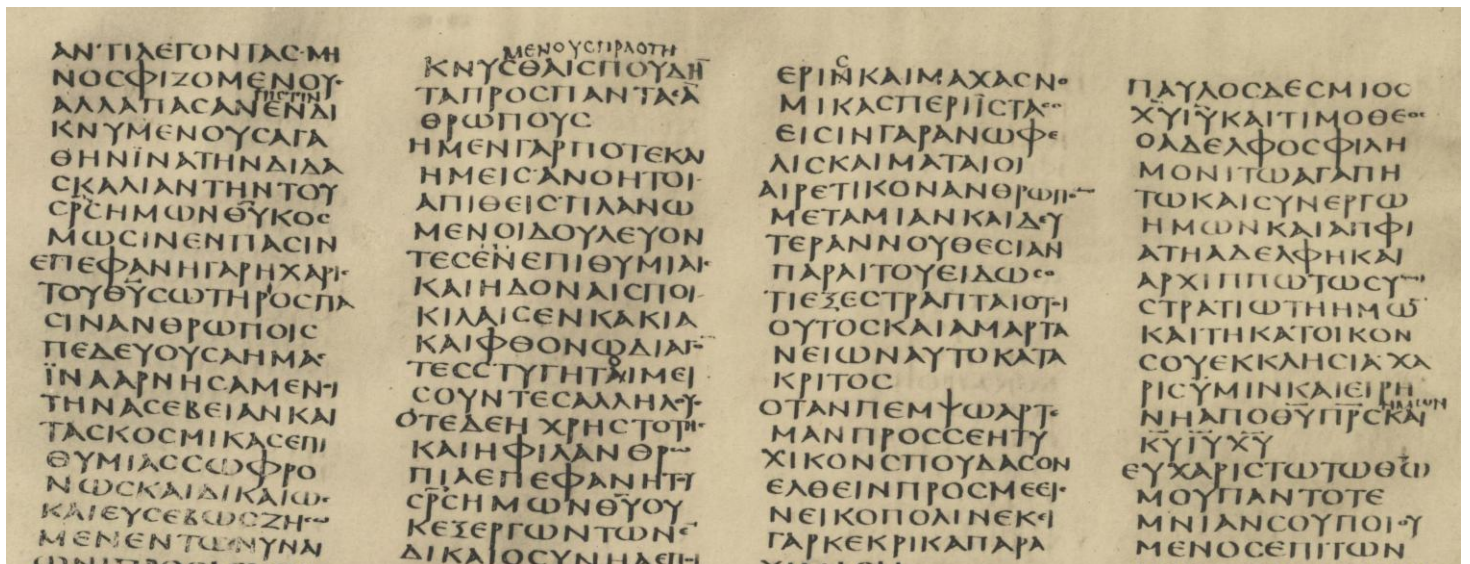 ΑΝΤΙΛΕΓΟΝΤΑϹ·ΜΗ
ΝΟϹΦΙΖΟΜΕΝΟΥ
ΠΙϹΤΙΝ
ΑΛΛΑΠΑϹΑΝΕΝΔΙ
ΚΝΥΜΕΝΟΥϹΑΓΑ
ΘΗΝΪΝΑΤΗΝΔΙΔΑ
ϹΚΑΛΙΑΝΤΗΝΤΟΥ
ϹΡ̅ϹΗΜΩΝΘ̅Υ̅ΚΟϹ
ΜΩϹΙΝΕΝΠΑϹΙΝ
ΕΠΕΦΑΝΗΓΑΡΗΧΑΡΙ
ΤΟΥΘ̅Υ̅ϹΩΤΗΡΟϹΠΑ
ϹΙΝΑΝΘΡΩΠΟΙϹ
ΠΕΔΕΥΟΥϹΑΗΜΑϹ
ΪΝΑΑΡΝΗϹΑΜΕΝΟΙ
ΤΗΝΑϹΕΒΕΙΑΝΚΑΙ
ΤΑϹΚΟϹΜΙΚΑϹΕΠΙ
ΘΥΜΙΑϹϹΩΦΡΟ
ΝΩϹΚΑΙΔΙΚΑΙΩϹ
ΚΑΙΕΥϹΕΒΩϹΖΗϹΩ
ΜΕΝΕΝΤΩΝΥΝΑΙ
ΜΕΝΟΥϹΠΡΑΟΤΗ
ΚΝΥϹΘΑΙϹΠΟΥΔΗ̅
ΤΑΠΡΟϹΠΑΝΤΑϹΑ̅
ΘΡΩΠΟΥϹ
ΗΜΕΝΓΑΡΠΟΤΕΚΑΙ
ΗΜΕΙϹΑΝΟΗΤΟΙ
ΑΠΙΘΕΙϹΠΛΑΝΩ
ΜΕΝΟΙΔΟΥΛΕΥΟΝ
ΤΕϹΕΝΕΠΙΘΥΜΙΑΙϹ
ΚΑΙΗΔΟΝΑΙϹΠΟΙ
ΚΙΛΑΙϹΕΝΚΑΚΙΑ
ΚΑΙΦΘΟΝΩΔΙΑΓΟ̅
ΤΕϹϹΤΥΓΗΤΑΙΜΕΙ
ϹΟΥΝΤΕϹΑΛΛΗΛΟΥϹ
ΟΤΕΔΕΗΧΡΗϹΤΟΤΗϹ
ΚΑΙΗΦΙΛΑΝΘΡΩ
ΠΙΑΕΠΕΦΑΝΗΤΟΥ
ϹΡ̅ϹΗΜΩΝΘ̅Υ̅ΟΥ
ΚΕΞΕΡΓΩΝΤΩΝΕ̅
ΔΙΚΑΙΟϹΥΝΗΑΕΠΟΙ
ΕΡΙΝΚΑΙΜΑΧΑϹΝΟ
ΜΙΚΑϹΠΕΡΙΪϹΤΑϹΟ
ΕΙϹΙΝΓΑΡΑΝΩΦΕ
ΛΙϹΚΑΙΜΑΤΑΙΟΙ
ΑΙΡΕΤΙΚΟΝΑΝΘΡΩΠΟ̅
ΜΕΤΑΜΙΑΝΚΑΙΔΕΥ
ΤΕΡΑΝΝΟΥΘΕϹΙΑΝ
ΠΑΡΑΙΤΟΥΕΙΔΩϹΟ
ΤΙΕΞΕϹΤΡΑΠΤΑΙΟΤΟΙ
ΟΥΤΟϹΚΑΙΑΜΑΡΤΑ
ΝΕΙΩΝΑΥΤΟΚΑΤΑ
ΚΡΙΤΟϹ
ΟΤΑΝΠΕΜΨΩΑΡΤΕ
ΜΑΝΠΡΟϹϹΕΗΤΥ
ΧΙΚΟΝϹΠΟΥΔΑϹΟΝ
ΕΛΘΕΙΝΠΡΟϹΜΕΕΙϹ
ΝΕΙΚΟΠΟΛΙΝΕΚΕΙ
ΓΑΡΚΕΚΡΙΚΑΠΑΡΑ
ΠΑΥΛΟϹΔΕϹΜΙΟϹ
Χ̅Υ̅Ι̅Υ̅ΚΑΙΤΙΜΟΘΕΟϹ
ΟΑΔΕΛΦΟϹΦΙΛΗ
ΜΟΝΙΤΩΑΓΑΠΗ
ΤΩΚΑΙϹΥΝΕΡΓΩ
ΗΜΩΝΚΑΙΑΠΦΙ
ΑΤΗΑΔΕΛΦΗΚΑΙ
ΑΡΧΙΠΠΩΤΩϹΥ
ϹΤΡΑΤΙΩΤΗΗΜΩ̅
ΚΑΙΤΗΚΑΤΟΙΚΟΝ
ϹΟΥΕΚΚΛΗϹΙΑΧΑ
ΡΙϹΥΜΙΝΚΑΙΕΙΡΗ
ΗΜΩΝ
ΝΗΑΠΟΘ̅Υ̅Π̅Ρ̅Ϲ̅ΚΑΙ
Κ̅Υ̅Ι̅Υ̅Χ̅Υ̅
ΕΥΧΑΡΙϹΤΩΤΩΘ̅Ω̅
ΜΟΥΠΑΝΤΟΤΕ
ΜΝΙΑΝϹΟΥΠΟΙΟΥ
ΜΕΝΟϹΕΠΙΤΩΝ